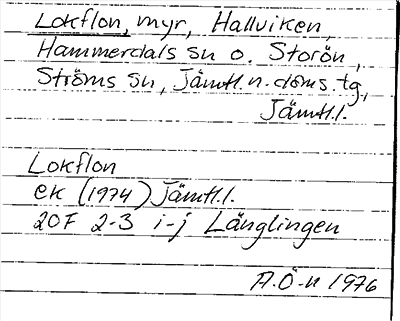 Lokflon, myr, Hallviken,
Hammerdals sn o. Storön,
Ströms sn, Jämtl. n. doms. tg,
Jämtl.l.
Lokflon
ek (1974) Jämtl.l.
20F 2-3 i-j Långlingen
A.Ö-n 1976